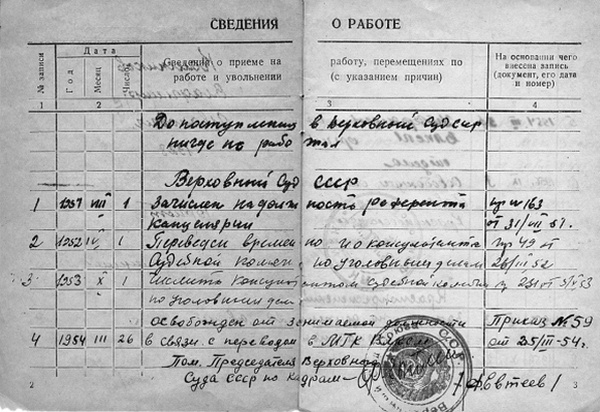 СВЕДЕНИЯ О РАБОТЕ
№ записи
Дата
Год
Месяц
Число
Сведения о приеме на работу, перемещениях по
работе и увольнении (с указанием причин)
На основании чего
внесена запись
(документ, его дата
и номер)
1 2 3 4
До поступления в Верховный Суд ССР
нигде не работал
Верховный Суд СССР
1 1951 VIII 1 Зачислен на должность референта пр №163
Канцелярии от 31/VII 51.
2 1952 1 Переведен временно и о консультанта пр 49 от
Судебной по уголовным делам 52
3 1953 X 1 Консультантом Судебной коллегии
по уголовным делам
освобожден от занимаемой должности Приказ №59
4 1954 III 26 в связи с переводом в МГК от 25/III-54г.
Пом. Председателя Верховного
Суда СССР по Кадрам- /Евтеев/
2 3